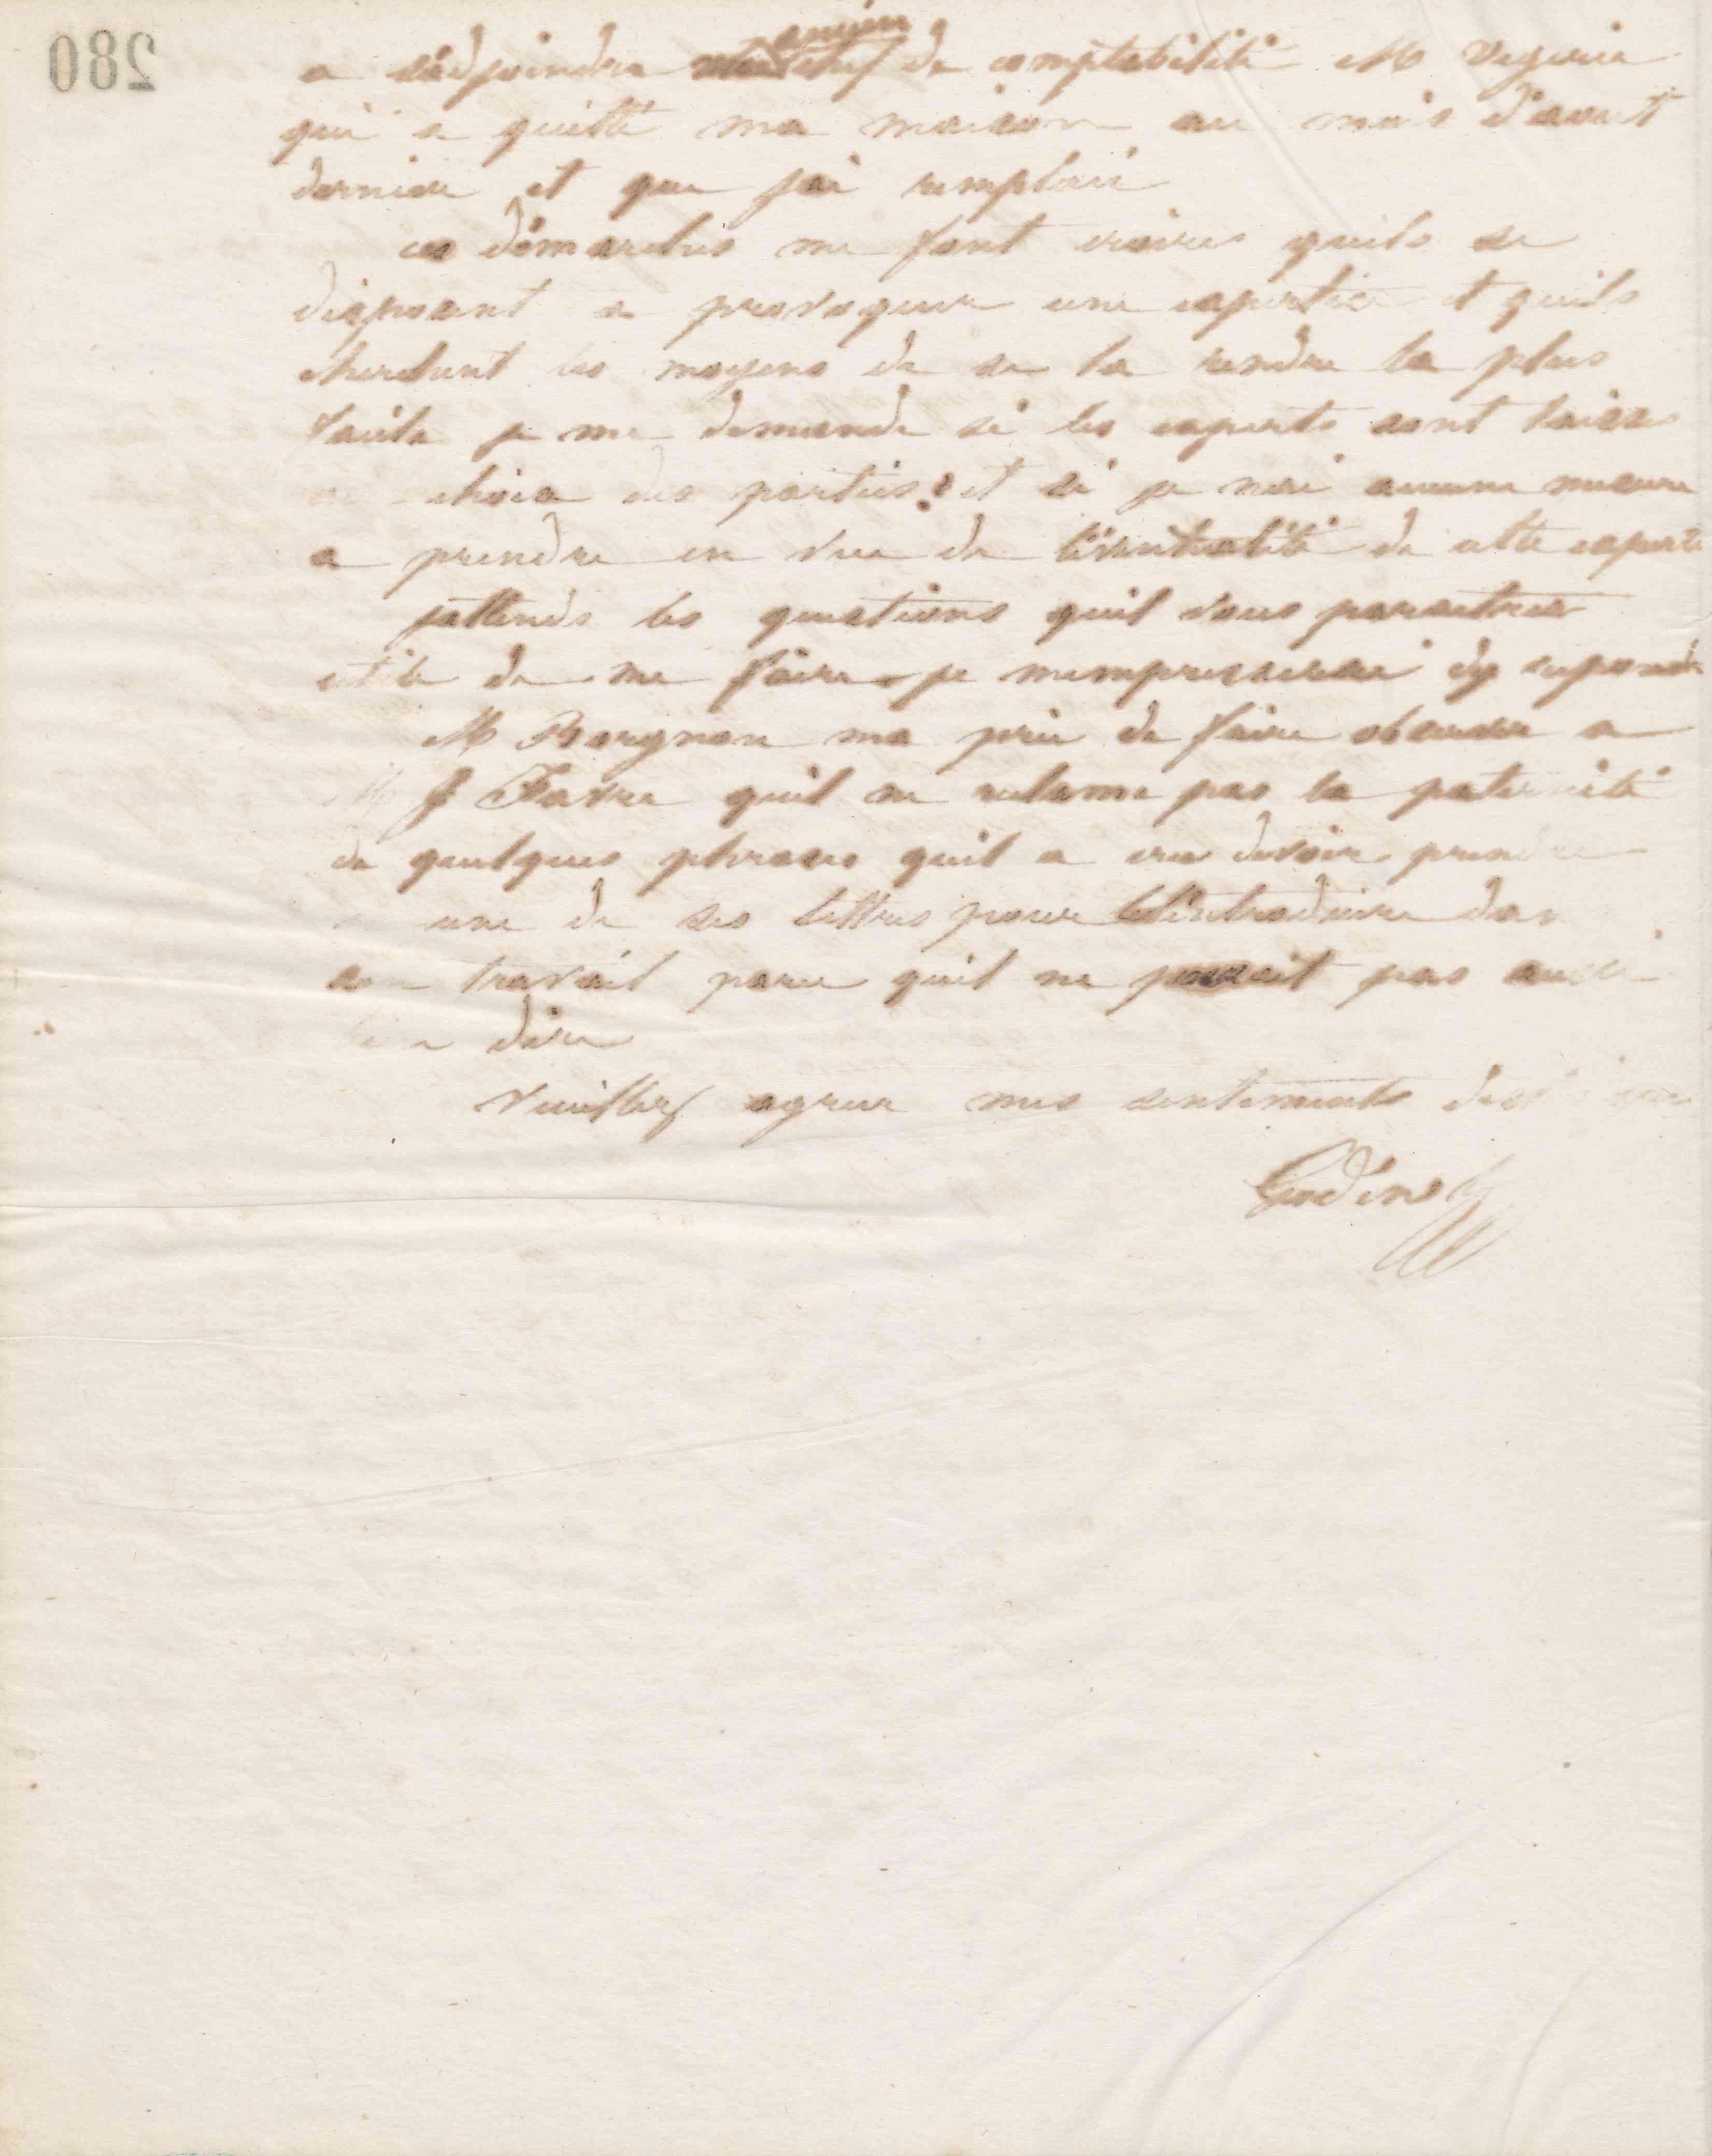 280
ancien
a s'adjoindre chef de comptabilité M
qui a quitté ma maison au mois d'aout
dernier et que j'ai remplacé
ces démarches me font croires quils se
disposent a provoquer une expertise et quils
cherchent les moyens de se la rendre la plus
facile je me demande si les experts sont laissé
choix des parties? et si je nai aucune mesure
a prendre en vue de l'éventualité de cette
jattends les questions quil vous paraitra
utile de me faire je mempresserai dy repondre
M ma prié de faire observer a
M J Favre quil ne reclame pas la paternité
de quelques phrases quil a cru devoir prendre
une de ses lettres pour introduire dans
son travail parce quil ne pouvait pas aussi
dire
Veuillez agreer mes sentiments
Godin